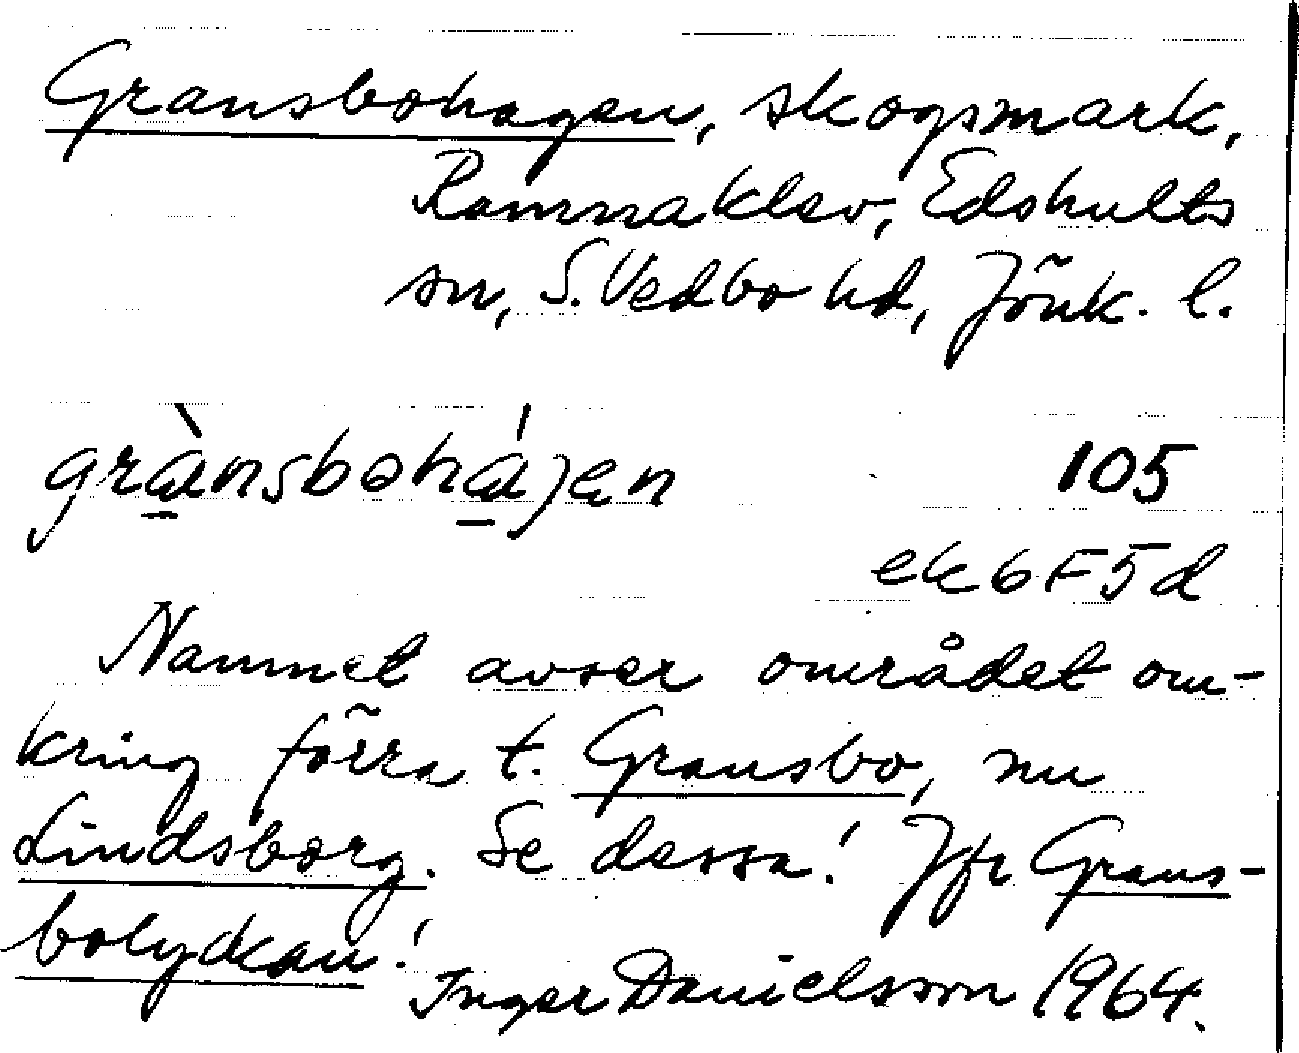 Gransbohagen, skogsmark,
Ramnaklev, Edshults
sn, S. Vedbo hd, Jönk. l.
grànsbohájen
105
ek 6F5d
Namnet avser området om-
kring förra t. Gransbo, nu
Lindsborg. Se dessa! Jfr Grans-
bolyckan!
Inger Danielsson 1964.